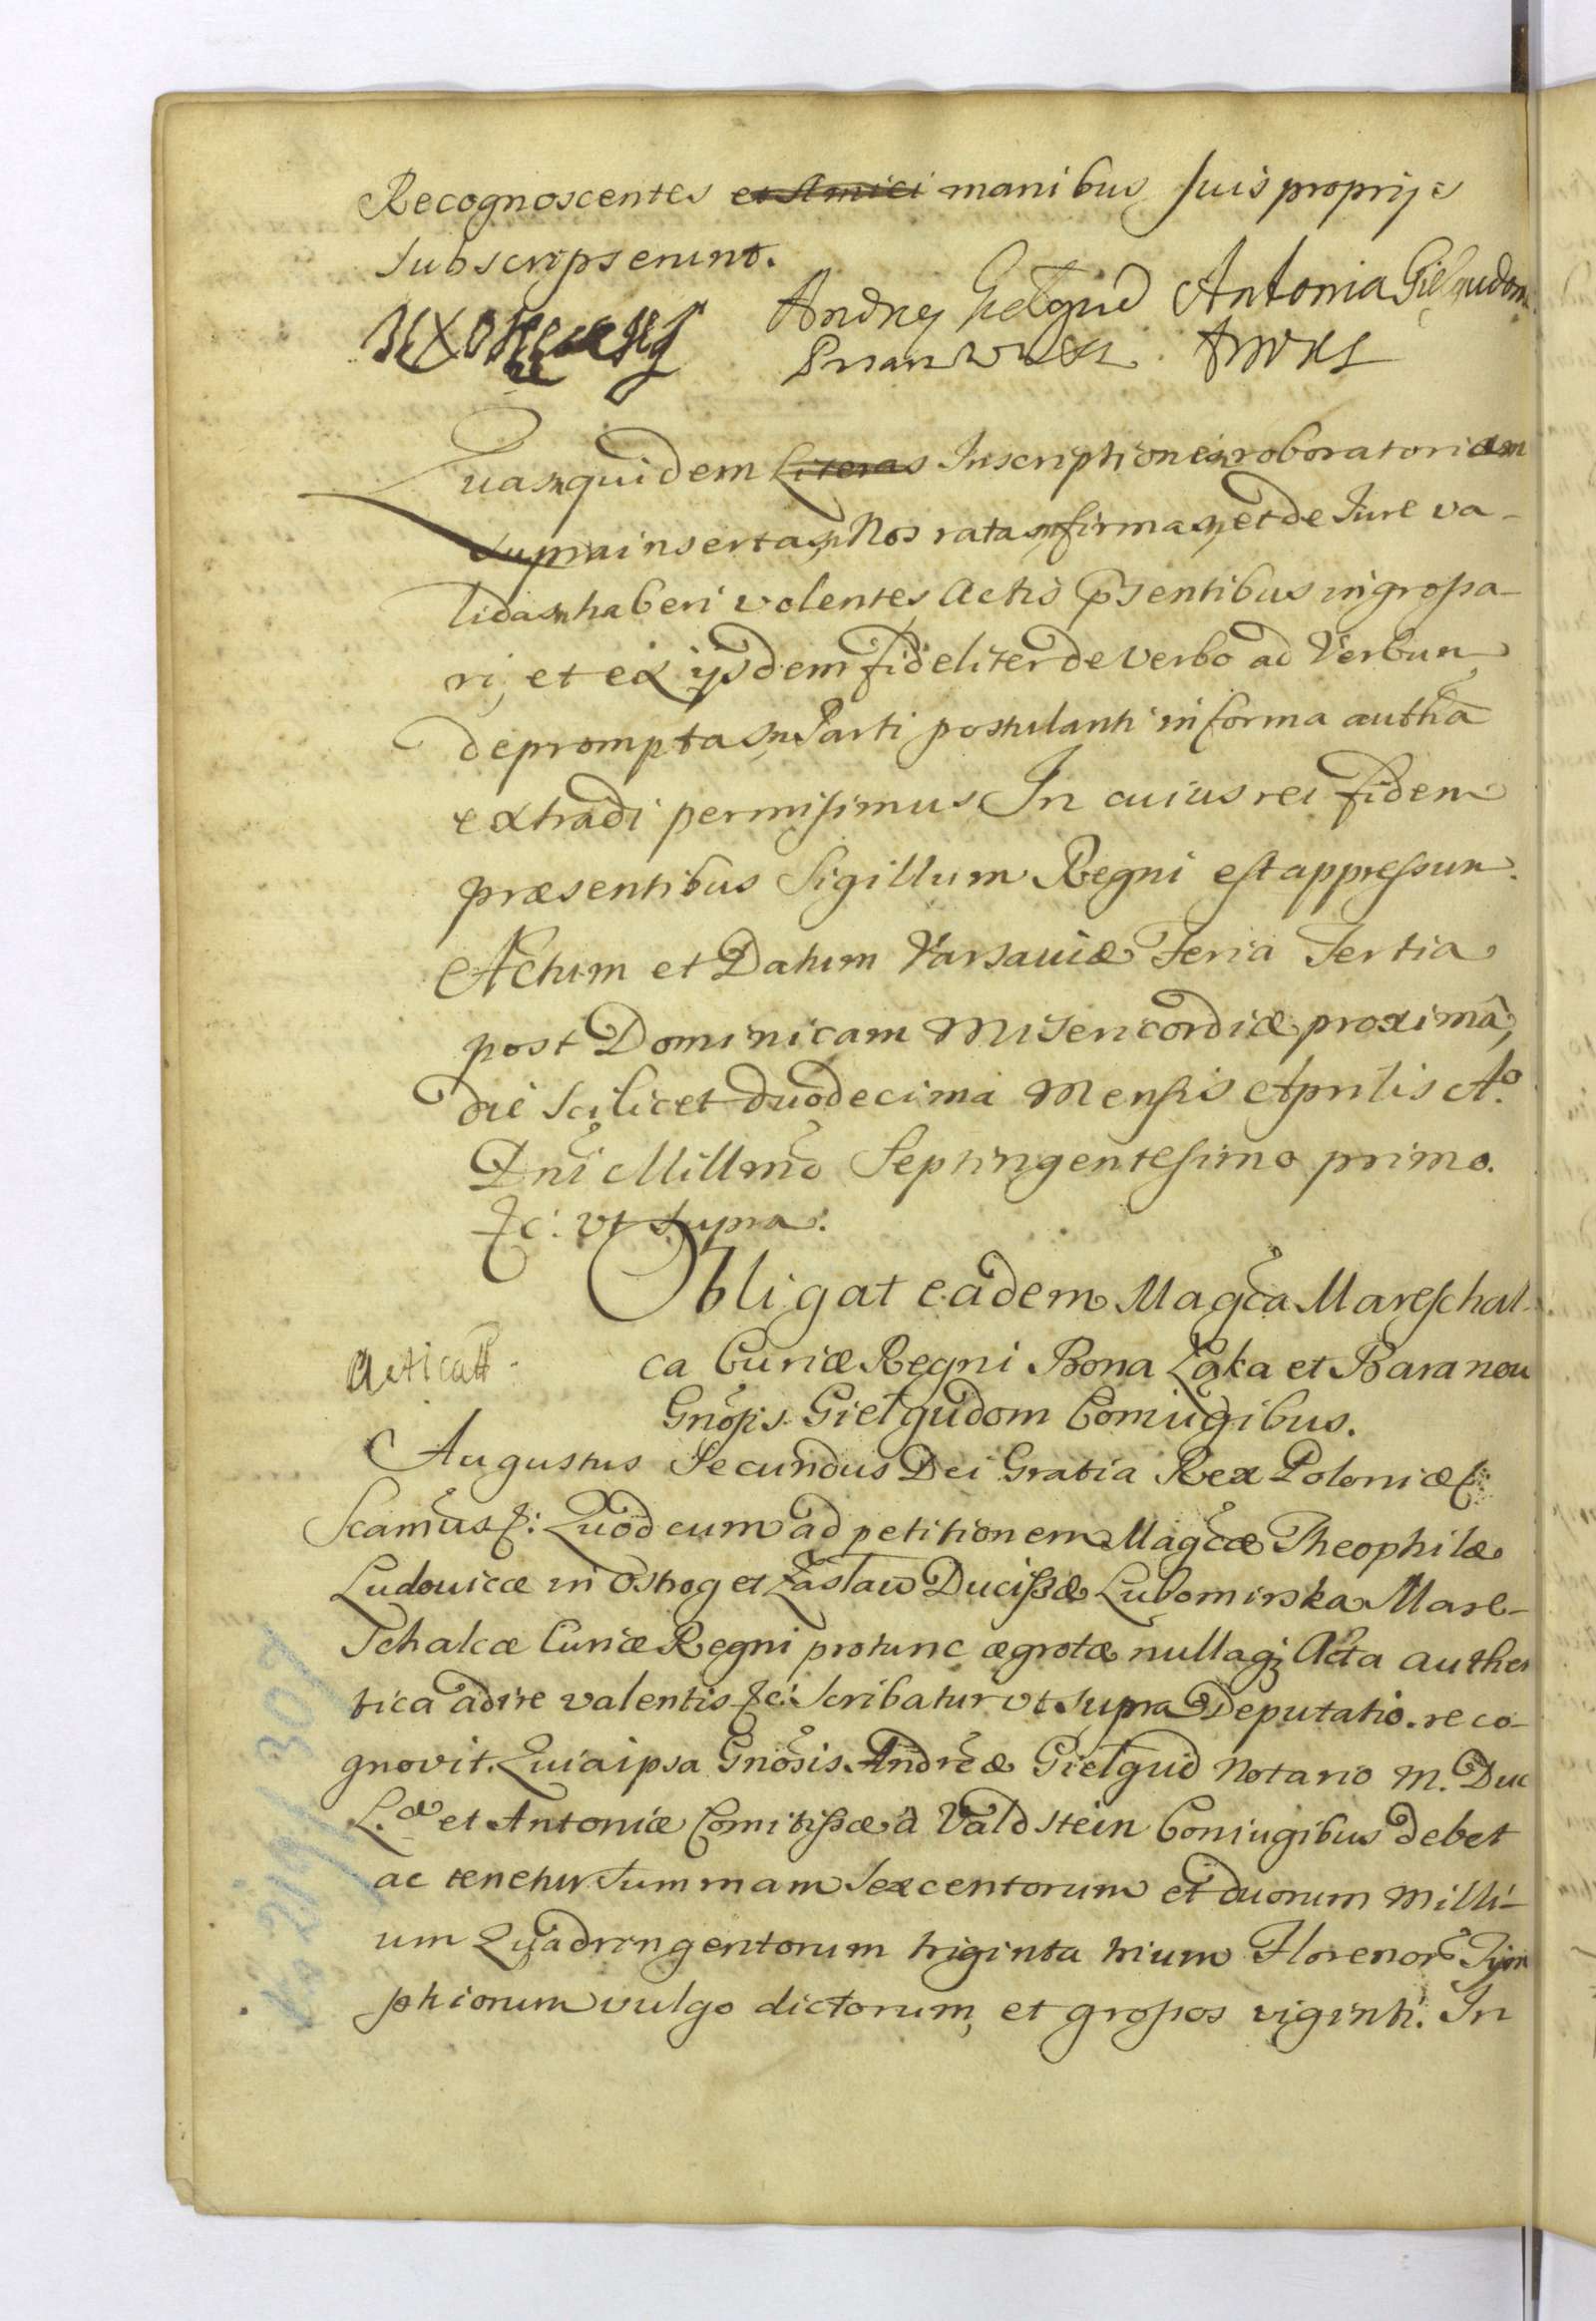 Recognoscentes et Amici manibus suis proprijs
subscripserunt.
Andrzej Giełgud Antonia Giełgudowa
Quam quidem Literas Inscriptionem roboratoriam
supra insertam, Nos ratam firmam, et de Iure va-
lidam haberi volentes, Actis pñsentibus ingrossa-
ri, et ex ijsdem fideliter de verbo ad Verbum
depromptam, Parti postulanti in forma authca
extradi permisimus. In cuius rei fidem
præsentibus Sigillum Regni est appressum.
Actum et Datum Varsaviæ Feria Tertia
post Dominicam Misericordiæ proximâ,
die scilicet duodecima Mensis Aprilis Aº
Dni Millmo Septingentesimo primo.
&c: vt supra.
Obligat eadem Magca Mareschal-
ca Curiæ Regni Bona Łąka et Baranow
Gnosis Giełgudom Coniugibus.
Acticatt.
Augustus Secundus Dei Gratia Rex Poloniæ &:
Scamus &: Quod cum ad petitionem Magcæ Theophilæ
Ludovicæ in Ostrog et Zasław Ducissæ Lubomirska Mare-
schalcæ Curiæ Regni protunc ægrotæ nullaq; Acta authen
tica adire valentis &c: scribatur vt supra Deputatio. reco-
gnovit. Quia ipsa Gnosis Andreæ Giełgud Notario M. Duc
L.æ et Antoniæ Comitissæ à Valdstein Coniugibus debet
ac tenetur Summam sexcentorum et duorum Milli-
um Quadringentorum triginta trium Florenor Tym
phionum vulgo dictorum, et grossos viginti. In